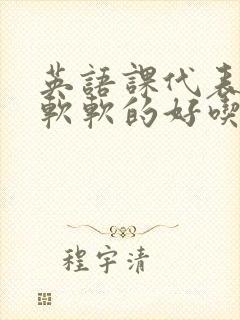 英語課代表
軟軟的好喫
程宇清